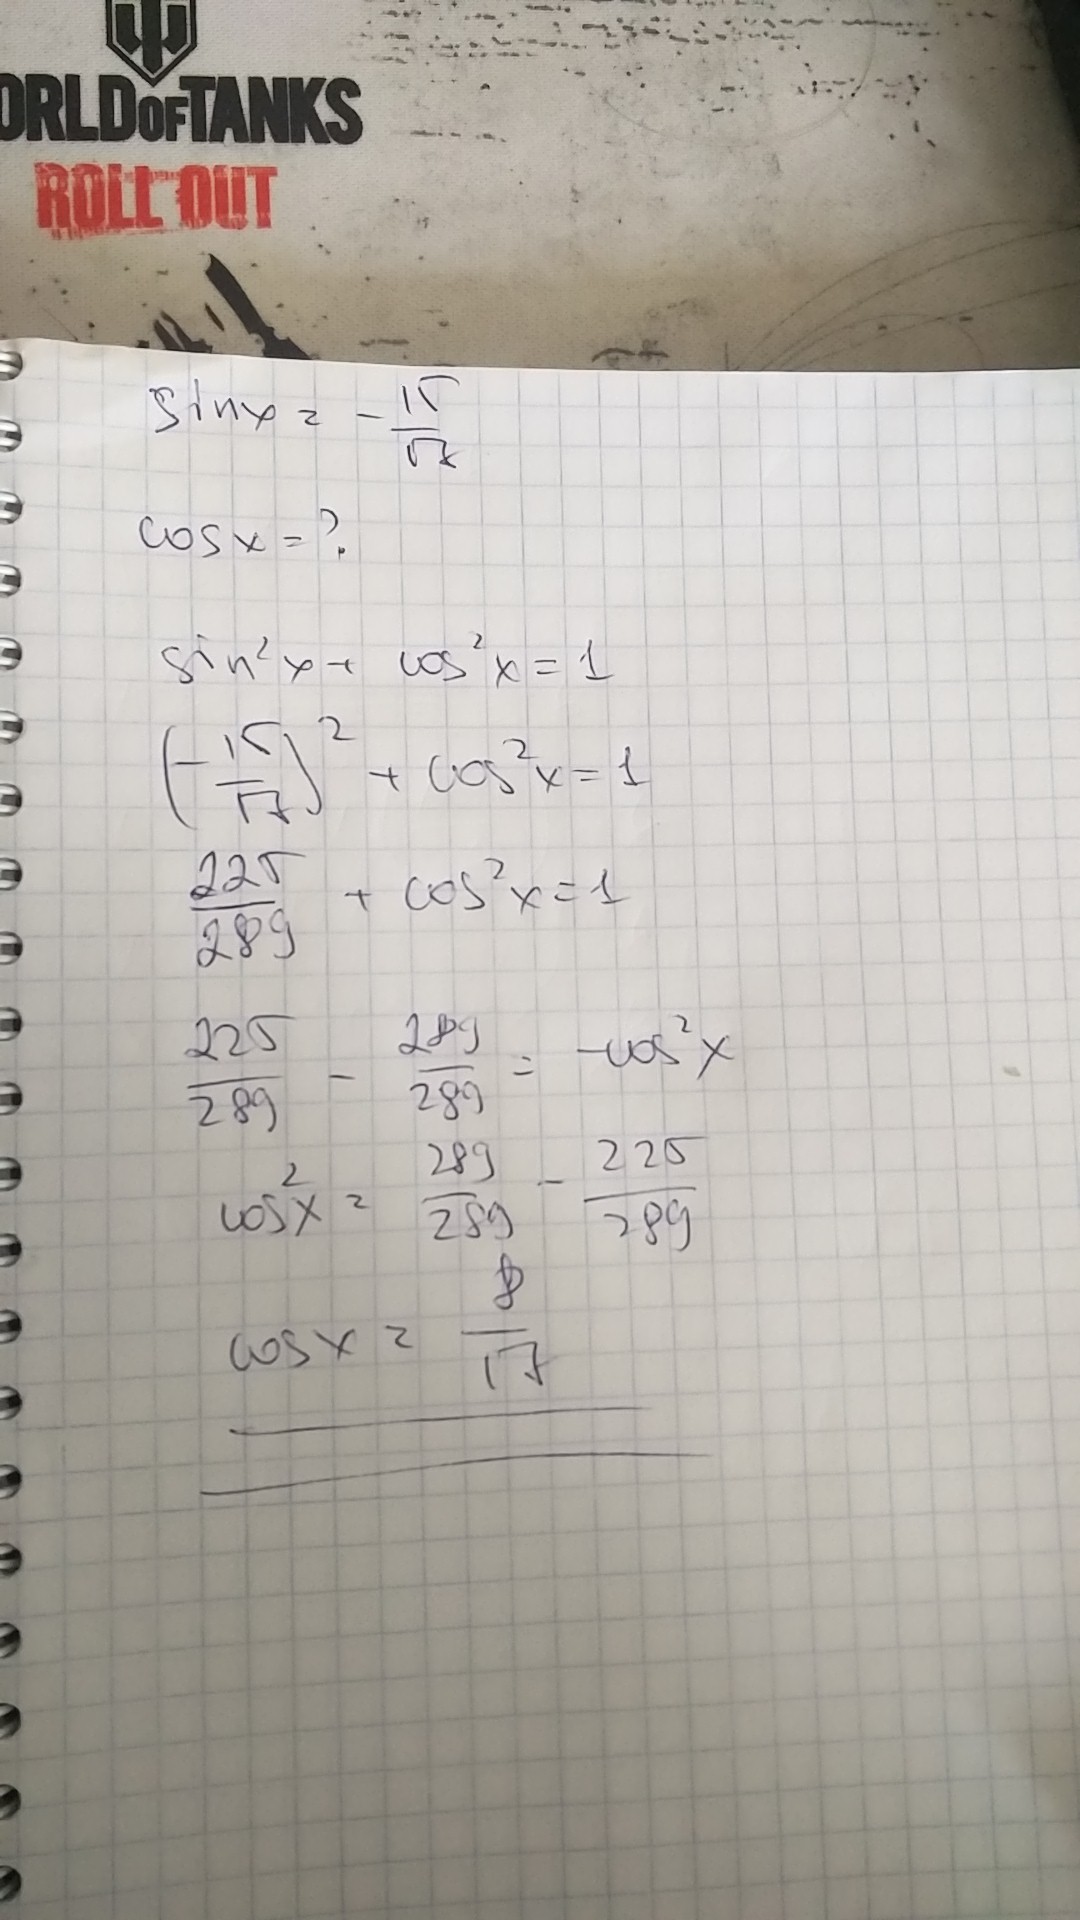 ORLD OF TANKS
ROLL OUT
sinx = -15/17
cosx = ?
sin²x + cos²x = 1
(-15/17)² + cos²x = 1
225/289 + cos²x = 1
225/289 - 289/289 = -cos²x
cos²x = 289/289 - 225/289
cosx = 8/17